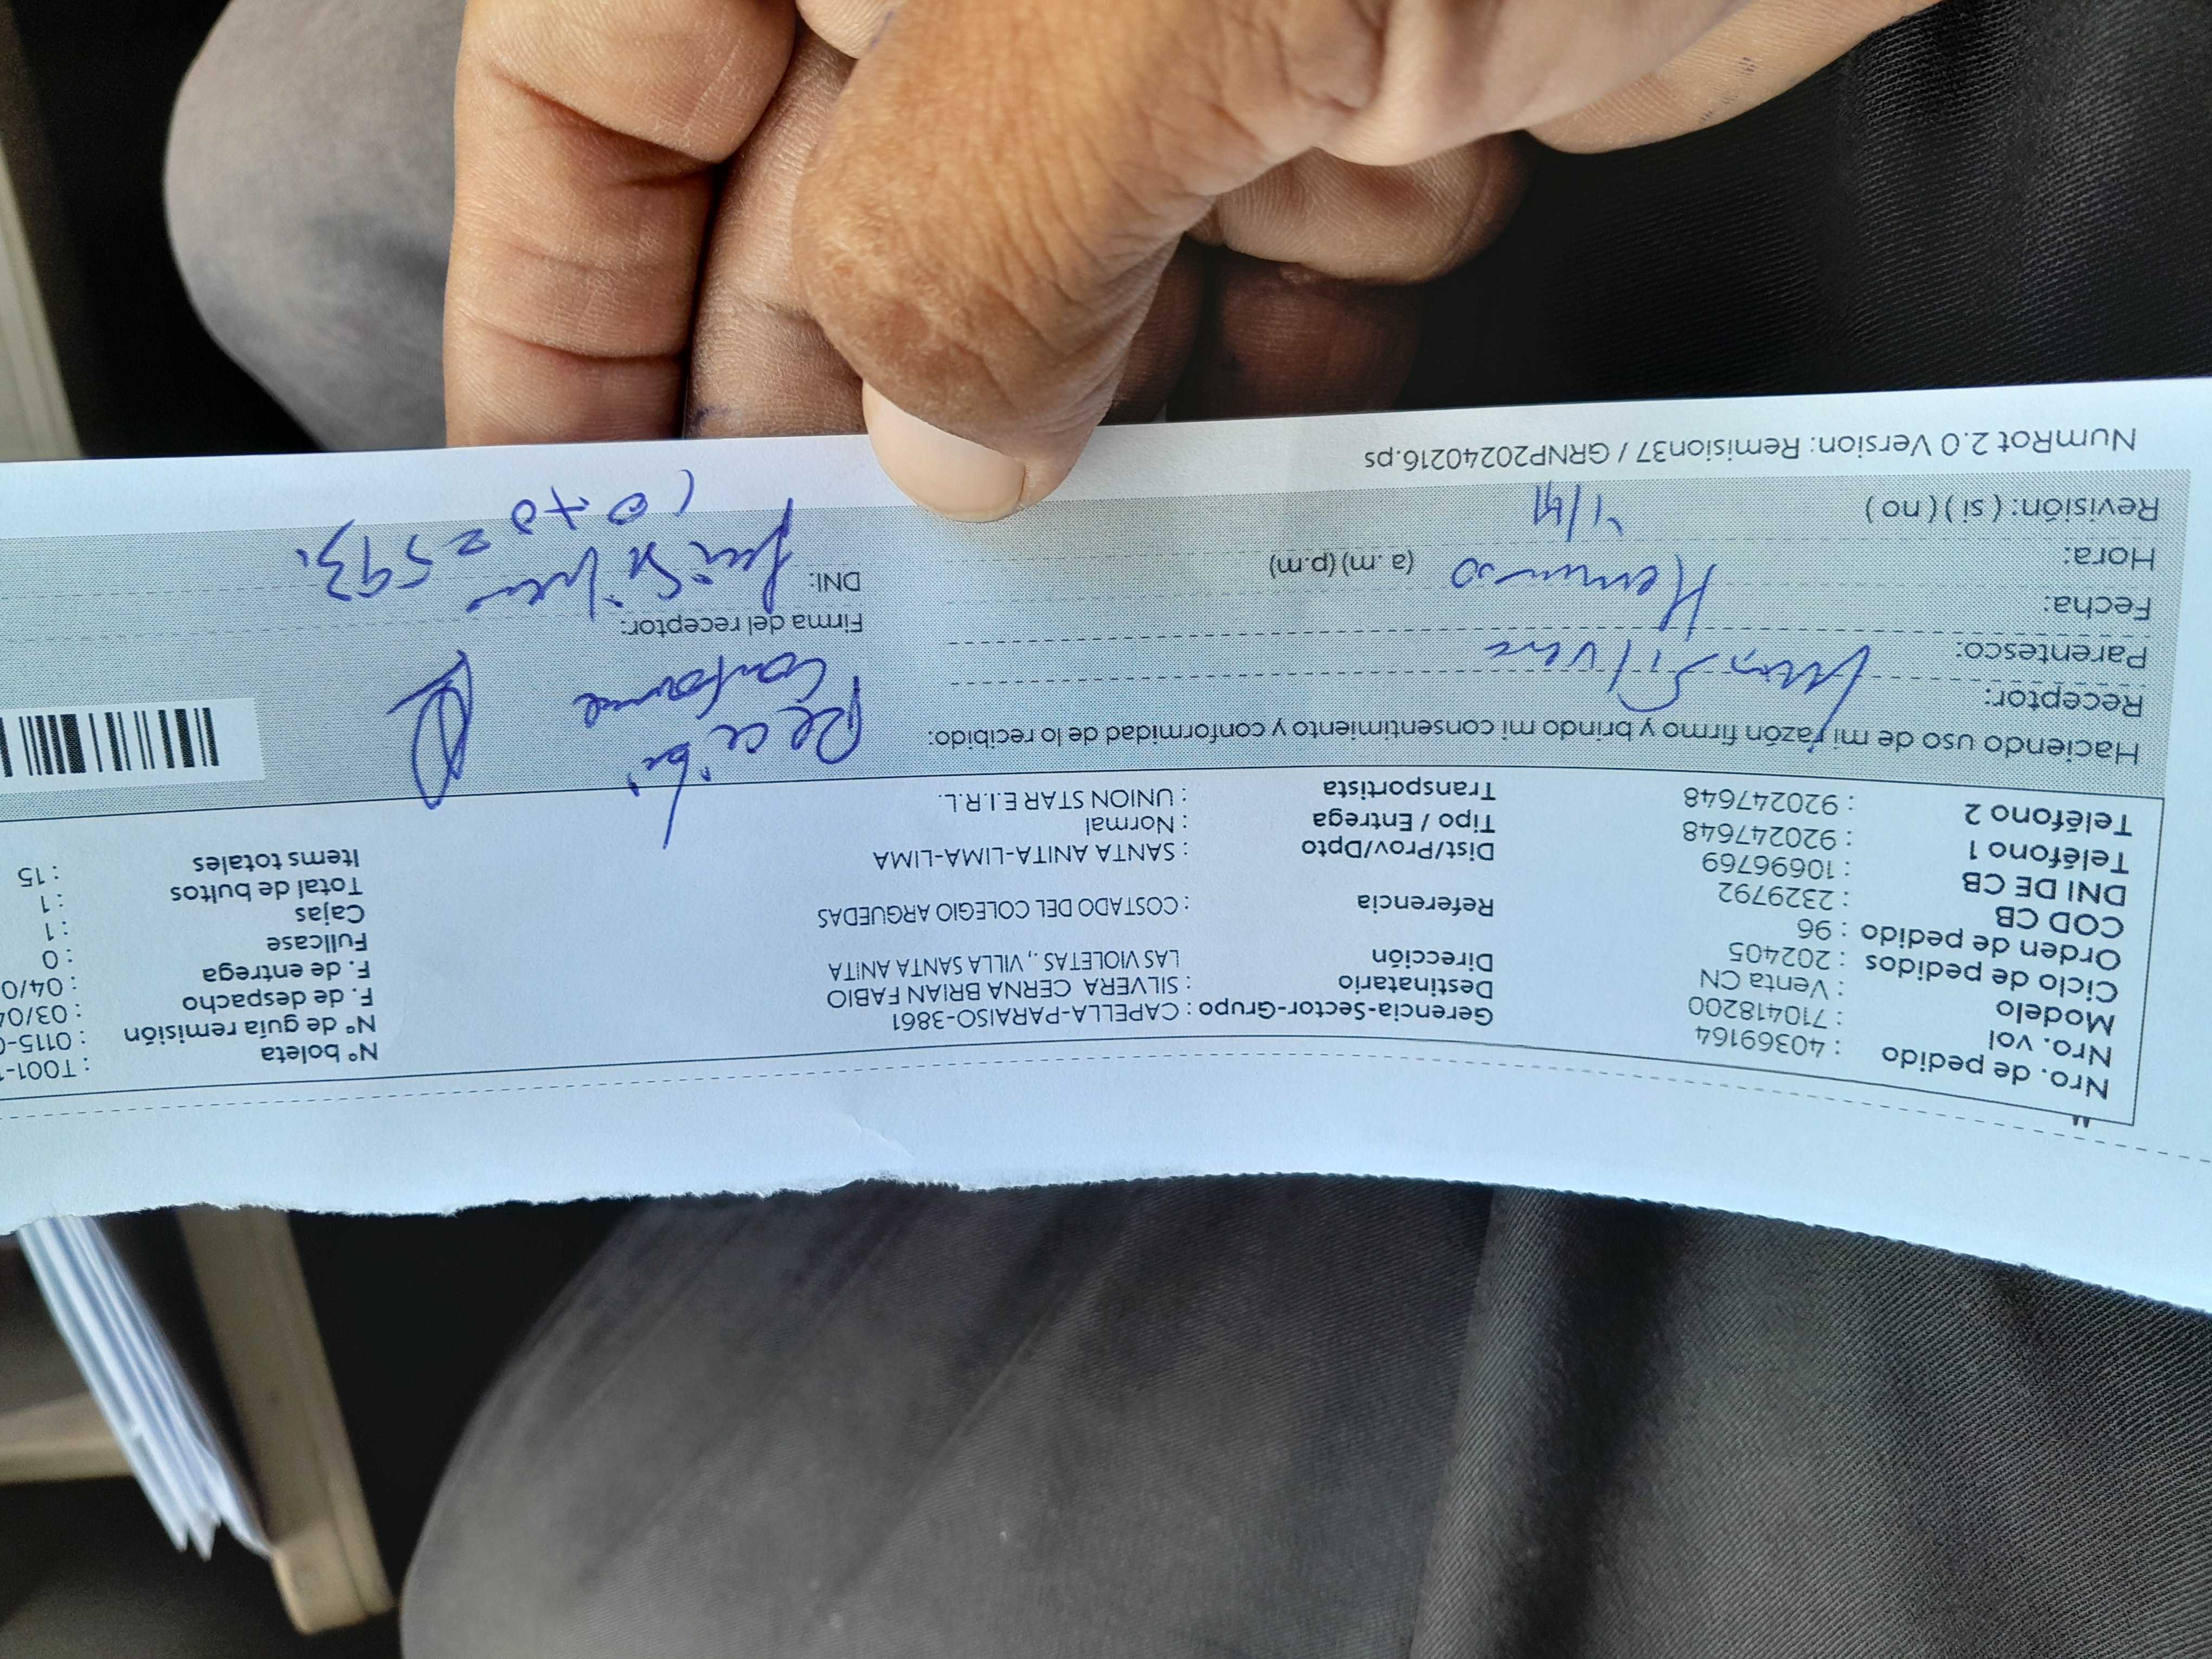 Nro. de pedido : 40369164
Nro. vol : 710418200
Modelo : Venta CN
Ciclo de pedidos : 202405
Orden de pedido : 96
COD CB : 2329792
DNI DE CB : 10696769
Teléfono 1 : 920247648
Teléfono 2 : 920247648
Gerencia-Sector-Grupo : CAPELLA-PARAISO-3861
Destinatario : SILVERA CERNA BRIAN FABIO
Dirección LAS VIOLETAS ., VILLA SANTA ANITA
Referencia : COSTADO DEL COLEGIO ARGUEDAS
Dist/Prov/Dpto : SANTA ANITA-LIMA-LIMA
Tipo / Entrega : Normal
Transportista : UNION STAR E.I.R.L.
N° boleta : T001-
N° de guía remisión : 0115-
F. de despacho : 03/04
F. de entrega : 04/0
Fullcase : 0
Cajas : 1
Total de bultos : 1
Items totales : 15
Haciendo uso de mi razón firmo y brindo mi consentimiento y conformidad de lo recibido:
Receptor: Silvera
Parentesco: Hermano
Fecha:
Hora: (a. m) (p.m)
Revisión: ( si ) ( no )
Recibí
conforme
Firma del receptor:
DNI:
NumRot 2.0 Version: Remision37 / GRNP20240216.ps